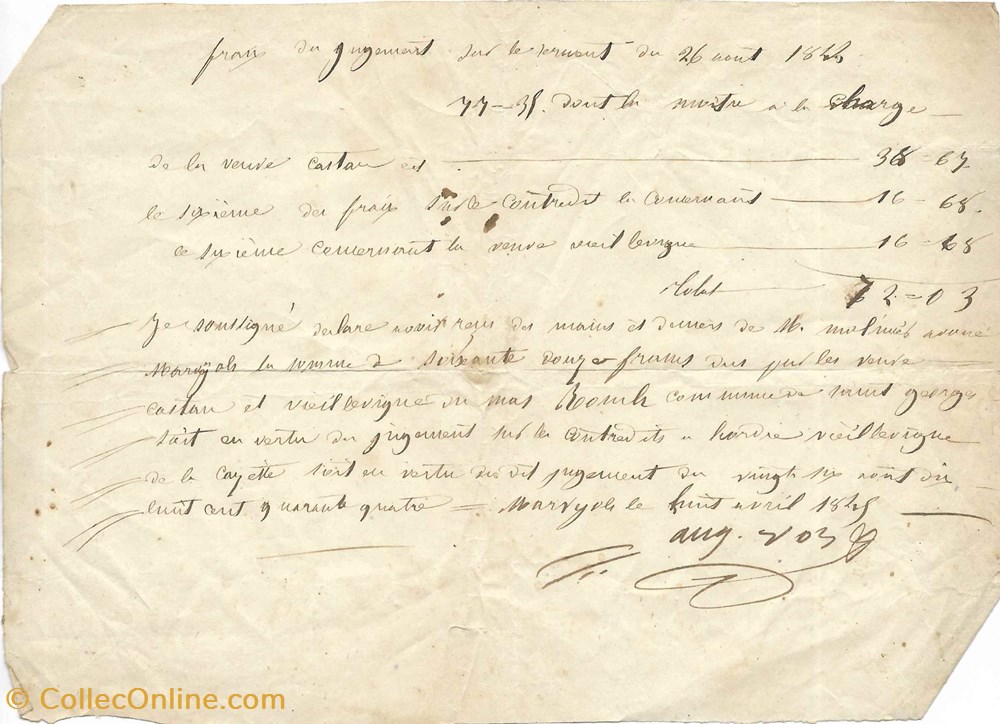 frais du jugement sur le serment du 26 août 1844
77 = 35. dont la moitie a la charge
de la veuve castan est 38 = 67
le sixième des frais sur le contredit la concernant 16 = 68.
le sixième concernant la veuve vieillevigne 16 = 68
total 72 = 03
Je soussigné declare avoir reçu des mains et deniers de M. molinès avoué
Marvejols la somme de soixante douze francs dus par les veuve
castan et vieillevigne du mas commune de saint georges
soit en vertu du jugement sur les contredits a l'ordre vieillevigne
de la cayette soit en vertu du dit jugement du vingt six août dix
huit cent quarante quatre = Marvejols le huit avril 1845
aug.
© CollecOnline.com